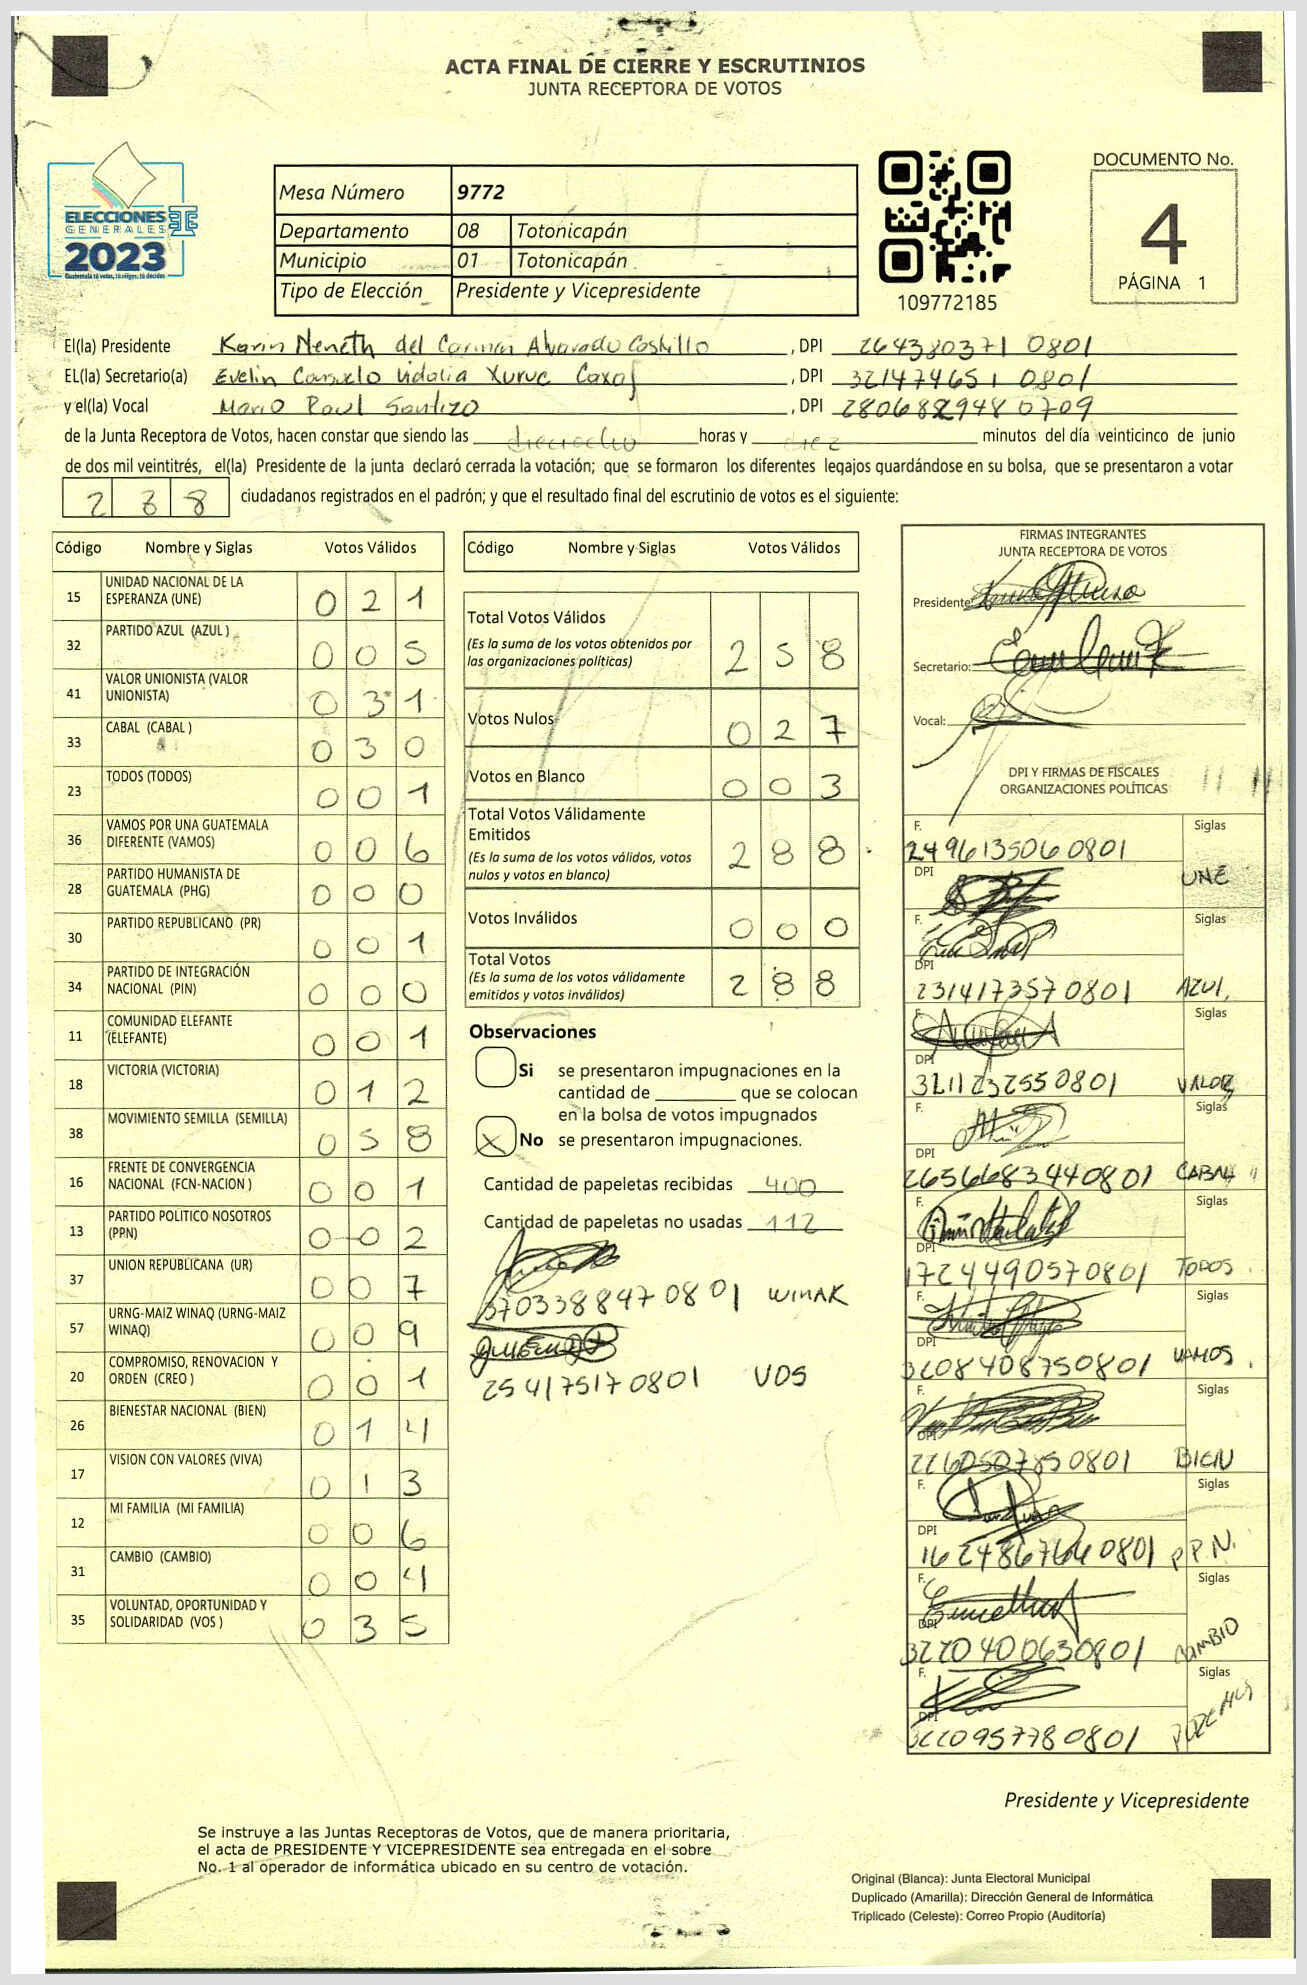 ACTA FINAL DE CIERRE Y ESCRUTINIOS
JUNTA RECEPTORA DE VOTOS
ELECCIONES
GENERALES
2023
Mesa Número 9772
Departamento 08 Totonicapán
Municipio 01 Totonicapán
Tipo de Elección Presidente y Vicepresidente
109772185
DOCUMENTO No.
4
PÁGINA 1
El(la) Presidente Karin Neneth del Carmen Alvarado Castillo, DPI 264380371 0801
EL(la) Secretario(a) Evelin Consuelo Vidalia Xuruc Caxaj, DPI 321474651 0801
y el(la) Vocal Mario Raul Santizo, DPI 280682948 0709
de la Junta Receptora de Votos, hacen constar que siendo las dieciocho horas y diez minutos del día veinticinco de junio
de dos mil veintitrés, el(la) Presidente de la junta declaró cerrada la votación; que se formaron los diferentes legajos guardándose en su bolsa, que se presentaron a votar
288 ciudadanos registrados en el padrón; y que el resultado final del escrutinio de votos es el siguiente:
Código Nombre y Siglas Votos Válidos
15 UNIDAD NACIONAL DE LA ESPERANZA (UNE) 0 2 1
32 PARTIDO AZUL (AZUL ) 0 0 5
41 VALOR UNIONISTA (VALOR UNIONISTA) 0 3 1
33 CABAL (CABAL ) 0 3 0
23 TODOS (TODOS) 0 0 1
36 VAMOS POR UNA GUATEMALA DIFERENTE (VAMOS) 0 0 6
28 PARTIDO HUMANISTA DE GUATEMALA (PHG) 0 0 0
30 PARTIDO REPUBLICANO (PR) 0 0 1
34 PARTIDO DE INTEGRACIÓN NACIONAL (PIN) 0 0 0
11 COMUNIDAD ELEFANTE (ELEFANTE) 0 0 1
18 VICTORIA (VICTORIA) 0 1 2
38 MOVIMIENTO SEMILLA (SEMILLA) 0 5 8
16 FRENTE DE CONVERGENCIA NACIONAL (FCN-NACION ) 0 0 1
13 PARTIDO POLITICO NOSOTROS (PPN) 0 0 2
37 UNION REPUBLICANA (UR) 0 0 7
57 URNG-MAIZ WINAQ (URNG-MAIZ WINAQ) 0 0 9
20 COMPROMISO, RENOVACION Y ORDEN (CREO ) 0 0 1
26 BIENESTAR NACIONAL (BIEN) 0 1 4
17 VISION CON VALORES (VIVA) 0 1 3
12 MI FAMILIA (MI FAMILIA) 0 0 6
31 CAMBIO (CAMBIO) 0 0 4
35 VOLUNTAD, OPORTUNIDAD Y SOLIDARIDAD (VOS ) 0 3 5
Código Nombre y Siglas Votos Válidos
Total Votos Válidos 2 5 8
(Es la suma de los votos obtenidos por
las organizaciones políticas)
Votos Nulos 0 2 7
Votos en Blanco 0 0 3
Total Votos Válidamente
Emitidos 2 8 8
(Es la suma de los votos válidos, votos
nulos y votos en blanco)
Votos Inválidos 0 0 0
Total Votos 2 8 8
(Es la suma de los votos válidamente
emitidos y votos inválidos)
Observaciones
Si se presentaron impugnaciones en la
cantidad de ________ que se colocan
en la bolsa de votos impugnados
X No se presentaron impugnaciones.
Cantidad de papeletas recibidas 400
Cantidad de papeletas no usadas 112
370338847 0801 WINAK
254175170801 VOS
FIRMAS INTEGRANTES
JUNTA RECEPTORA DE VOTOS
Presidente:
Secretario:
Vocal:
DPI Y FIRMAS DE FISCALES
ORGANIZACIONES POLÍTICAS
F. Siglas
249613506 0801
DPI UNE
F. Siglas
DPI
231417357 0801 AZUL
F. Siglas
DPI
321123255 0801 VALOR
F. Siglas
DPI
265668344 0801 CABAL
F. Siglas
DPI
172449057 0801 TODOS
F. Siglas
DPI
320840875 0801 VAMOS
F. Siglas
DPI
226050785 0801 BIEN
F. Siglas
DPI
162486764 0801 P.P.N.
F. Siglas
DPI
322040063 0801 CAMBIO
F. Siglas
DPI
322095778 0801 PODEMOS
Presidente y Vicepresidente
Se instruye a las Juntas Receptoras de Votos, que de manera prioritaria,
el acta de PRESIDENTE Y VICEPRESIDENTE sea entregada en el sobre
No. 1 al operador de informática ubicado en su centro de votación.
Original (Blanca): Junta Electoral Municipal
Duplicado (Amarilla): Dirección General de Informática
Triplicado (Celeste): Correo Propio (Auditoría)